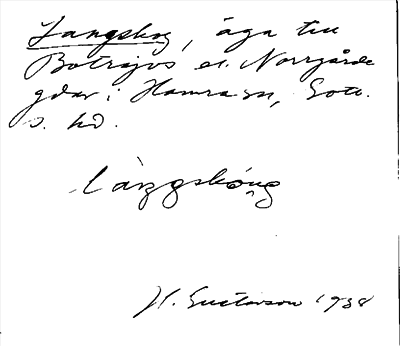 Langskog, äga till
Botrajvs o. Norrgårde
gdar i Hamra sn, Gotl.
s. hd.
làŋgskóug
H. Gustavson 1938